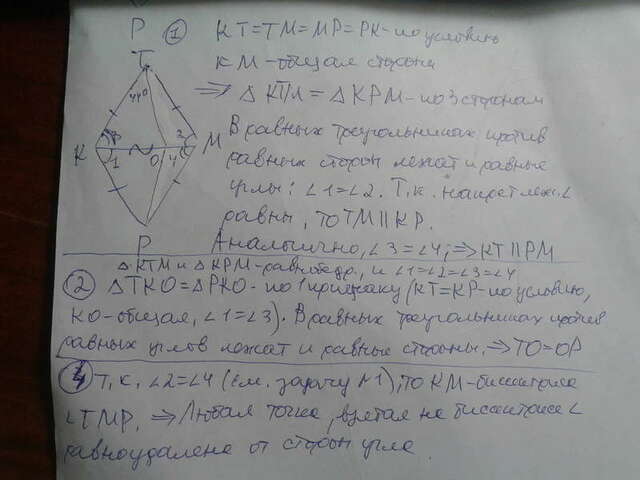 Р ① КТ=ТМ=МР=РК-по условию
Т КМ-общая сторона
44° ⇒ Δ КТМ = Δ КРМ-по 3 сторонам
В равных треугольниках против
К 1 О 4 3 М равных сторон лежат и равные
углы: ∠1=∠2. Т.к. накрест леж. ∠
равны, то ТМ||КР.
Р Аналогично, ∠3=∠4; ⇒ КТ||РМ
Δ КТМ и Δ КРМ-равнобедр., и ∠1=∠2=∠3=∠4
② Δ ТКО=Δ РКО-по 1 признаку (КТ=КР-по условию,
КО-общая, ∠1=∠3). В равных треугольниках против
равных углов лежат и равные стороны. ⇒ ТО=ОР
④ Т.к. ∠2=∠4 (см. задачу №1), то КМ-биссектриса
∠ТМР. ⇒ Любая точка, взятая на биссектрисе ∠
равноудалена от сторон угла.